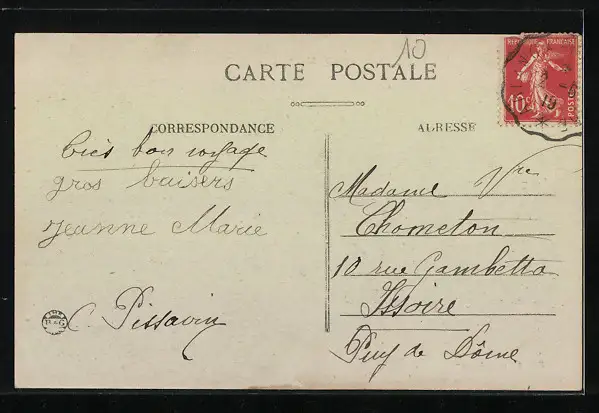 10
CARTE POSTALE
RÉPUBLIQUE FRANÇAISE
10c
POSTES
CORRESPONDANCE
Très bon voyage
gros baisers
Jeanne Marie
C. Pissavin
B & G
ADRESSE
Madame Vve
Chometon
10 rue Gambetta
Issoire
Puy de Dôme